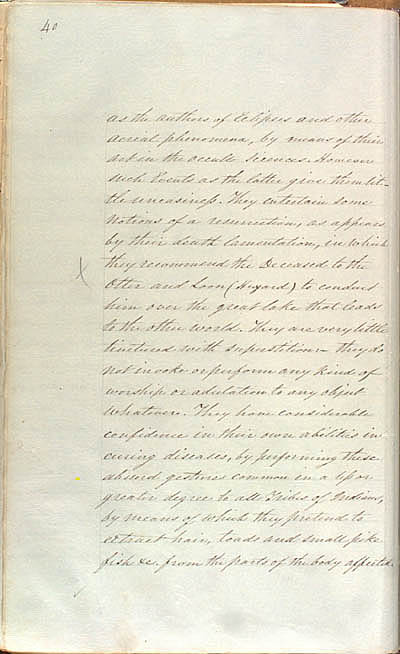 40
as the authors of Eclipses and other
aereal phenomena, by means of their
art in the occult Sciences. However
such Events as the latter give them lit-
tle uneasiness. They entertain some
Notions of a resurrection, as appears
by their death lamentation, in which
they recommend the Deceased to the
Otter and Loon (Huyard) to conduct
him over the great lake that leads
to the other world. They are very little
tinctured with superstition - they do
not invoke or perform any kind of
worship or adulation to any object
whatever. They have considerable
confidence in their own abilities in
curing diseases, by performing those
absurd gestures common in a less or
greater degree to all Tribes of Indians,
by means of which they pretend to
extract hair, toads and small pike
fish &c. from the parts of the body affected.